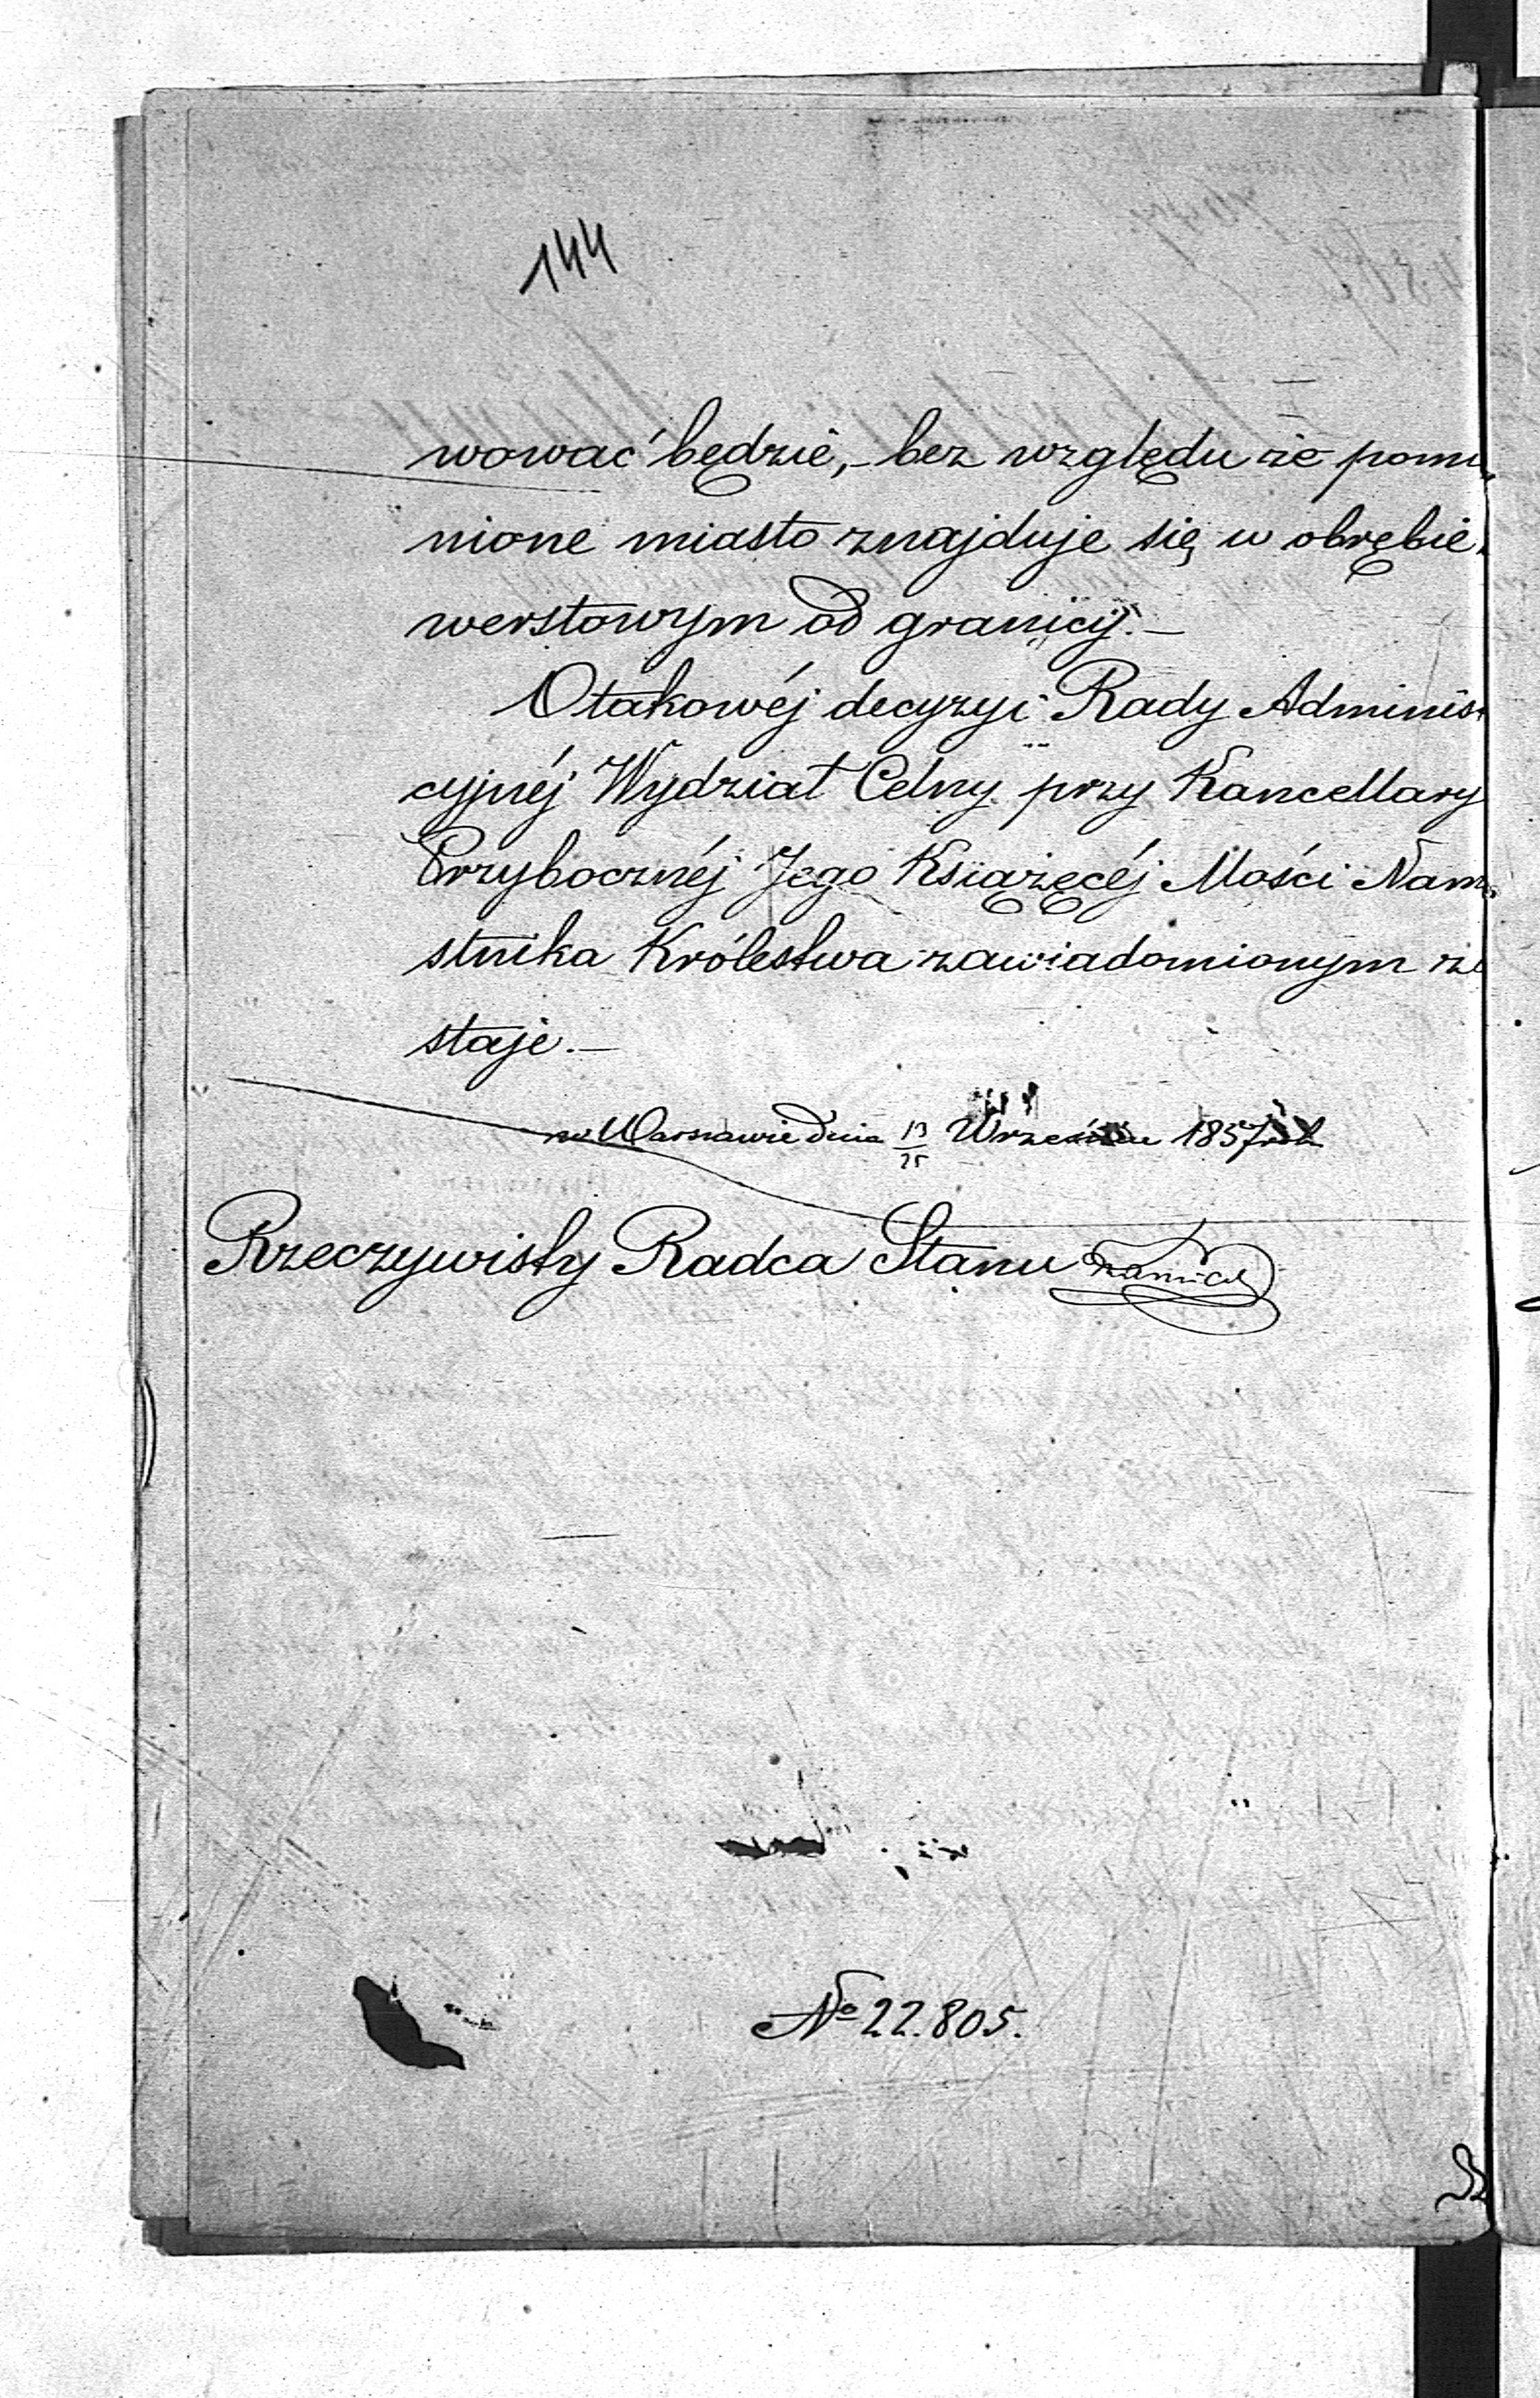 144
wować będzie,- bez względu że pomi
nione miasto znajduje się w obrębie
werstowym od granicy.-
O takowéj decyzyi Rady Adminis
cyjnéj Wydział Celny przy Kancellary
Przybocznéj Jego Książęcéj Mości Nam
stnika Królestwa zawiadomionym zo
staje.-
w Warszawie dnia 13/25 Września 1857 rok
Rzeczywisty Radca Stanu
№ 22.805.